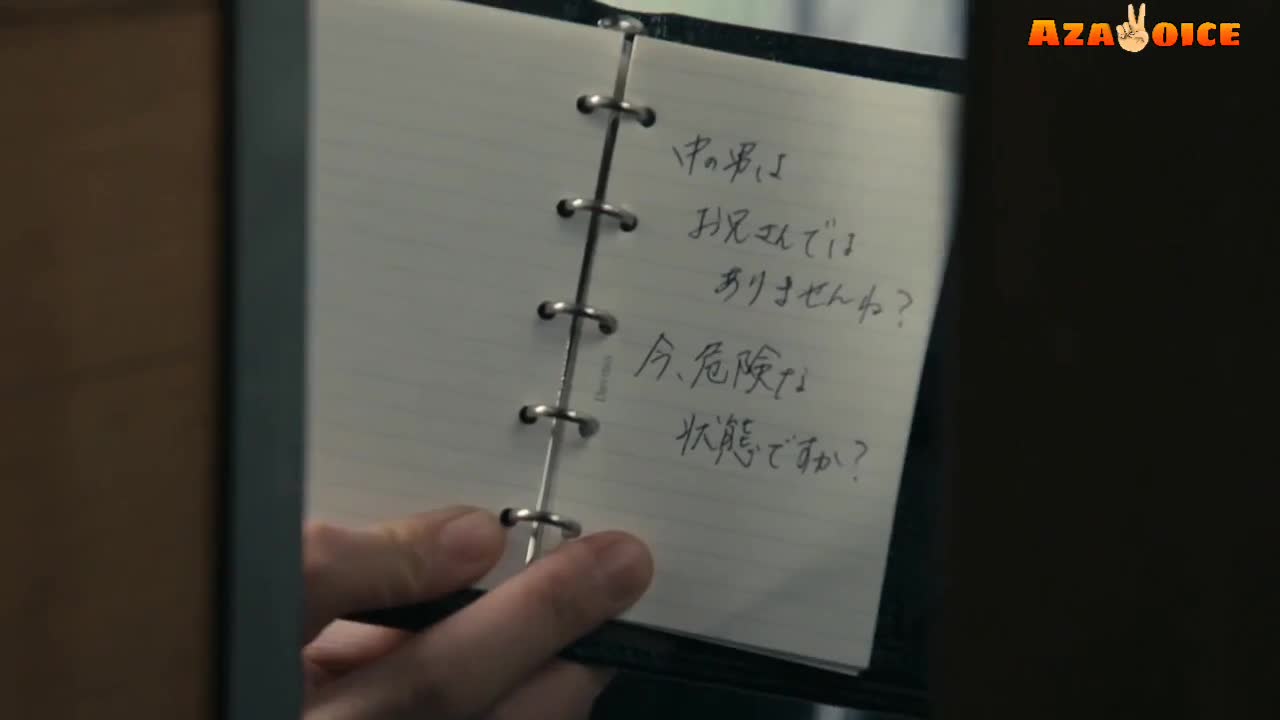 AZAVOICE
中の男は
お兄さんでは
ありませんね?
今、危険な
状態ですか?